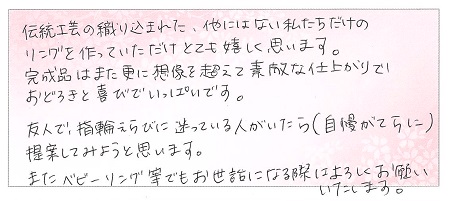 伝統工芸の織り込まれた、他にはない私たちだけの
リングを作っていただけとても嬉しく思います。
完成品はまた更に想像を超えて素敵な仕上がりで
おどろきと喜びでいっぱいです。
友人で、指輪えらびに迷っている人がいたら(自慢がてらに)
提案してみようと思います。
またベビーリング等でもお世話になる際はよろしくお願い
いたします。